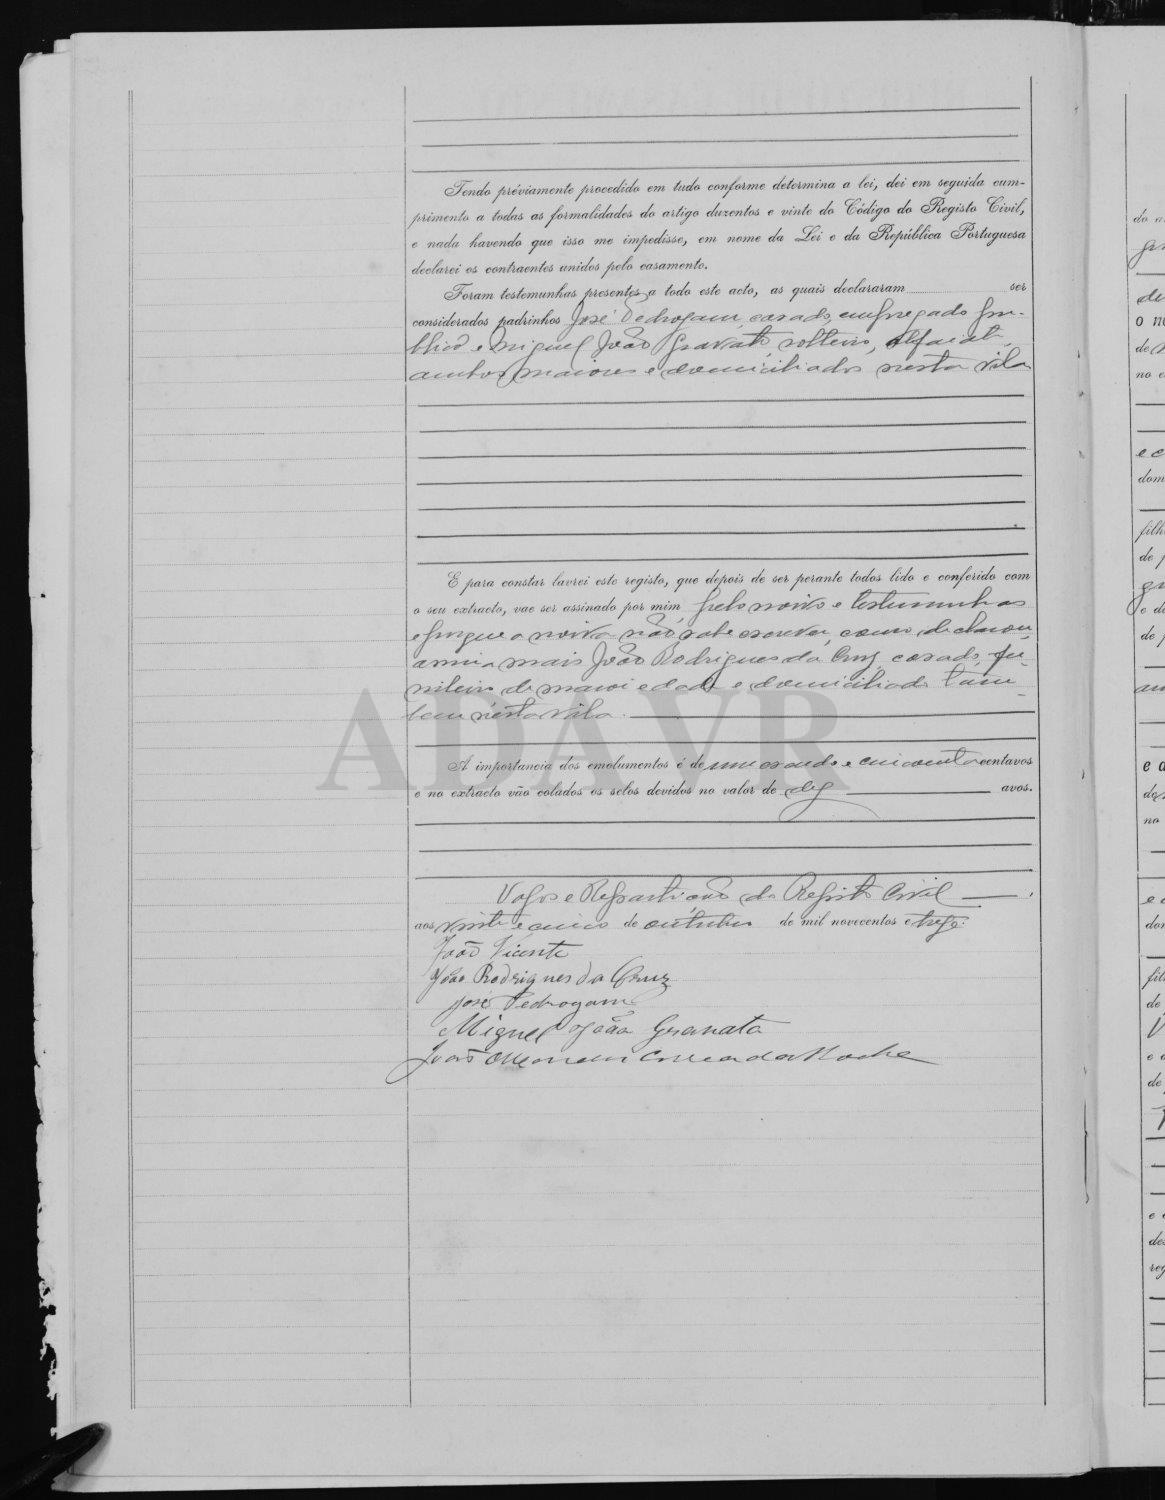 Tendo préviamente procedido em tudo conforme determina a lei, dei em seguida cum-
primento a todas as formalidades do artigo duzentos e vinte do Código do Registo Civil,
e nada havendo que isso me impedisse, em nome da Lei e da República Portuguesa
declarei os contraentes unidos pelo casamento.
Foram testemunhas presentes a todo este acto, as quais declararam ser
considerados padrinhos José Pedrogam, casado, empregado pu-
blico e Miguel João Gravato, solteiro, alfaiate,
ambos maiores e domiciliados nesta vila
E para constar lavrei este registo, que depois de ser perante todos lido e conferido com
o seu extracto, vae ser assinado por mim pelo noivo e testemunhas
e porque a noiva não sabe escrever, como declarou,
assina mais João Rodrigues da Cruz, casado, fu-
nileiro de maior edade e domiciliado tam-
bem nesta vila.
ADAVR
A importancia dos emolumentos é de um escudo e cincoenta centavos
e no extracto vão colados os selos devidos no valor de dez avos.
Vagos e Repartição do Registo Civil
aos vinte e cinco de outubro de mil novecentos e treze.
João Vicente
João Rodrigues da Cruz
José Pedrogam
Miguel João Gravato
João Correa da Rocha
do a
de
o no
de
no
e c
dom
filh
de p
e d
de p
e d
de
no
e
do
fil
de
e
de
e
de
reg